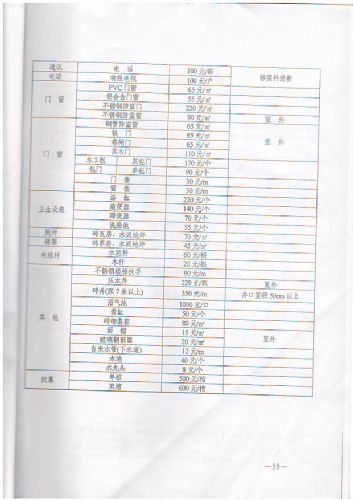 通讯 电 话 100元/部 移装补差价
电话 有线电视 100元/户
门 窗 PVC门窗 65元/㎡
铝合金门窗 55元/㎡
不锈钢防盗门 220元/㎡
不锈钢防盗窗 90元/㎡ 室 外
门 窗 钢管防盗窗 65元/㎡ 室 外
铁 门 65元/㎡
卷闸门 65元/㎡
实木门 110元/㎡
木工板 双包门 170元/个
包门 单包门 90元/个
门 套 30元/m
窗 套 30元/m
卫生设施 浴 缸 220元/个
座便器 140元/个
蹲便器 70元/个
洗脸池 55元/个
厕所 砖瓦房、水泥地坪 70元/㎡
猪圈 砖草房、水泥地坪 45元/㎡
电线杆 水泥杆 60元/根
木杆 20元/根
其 他 不锈钢楼梯扶手 90元/m
压水井 220元/眼 室外
砖井(深7米以上) 350元/m 井口直径50cm以上
沼气池 1000元/口
粪缸 50元/个
砖砌粪窖 80元/㎡
雨 棚 15元/㎡
玻璃钢雨罩 20元/㎡ 室外
自来水管(下水道) 12元/m
水池 40元/个
水龙头 8元/个
坟墓 单棺 500元/棺
双棺 600元/棺
—59—